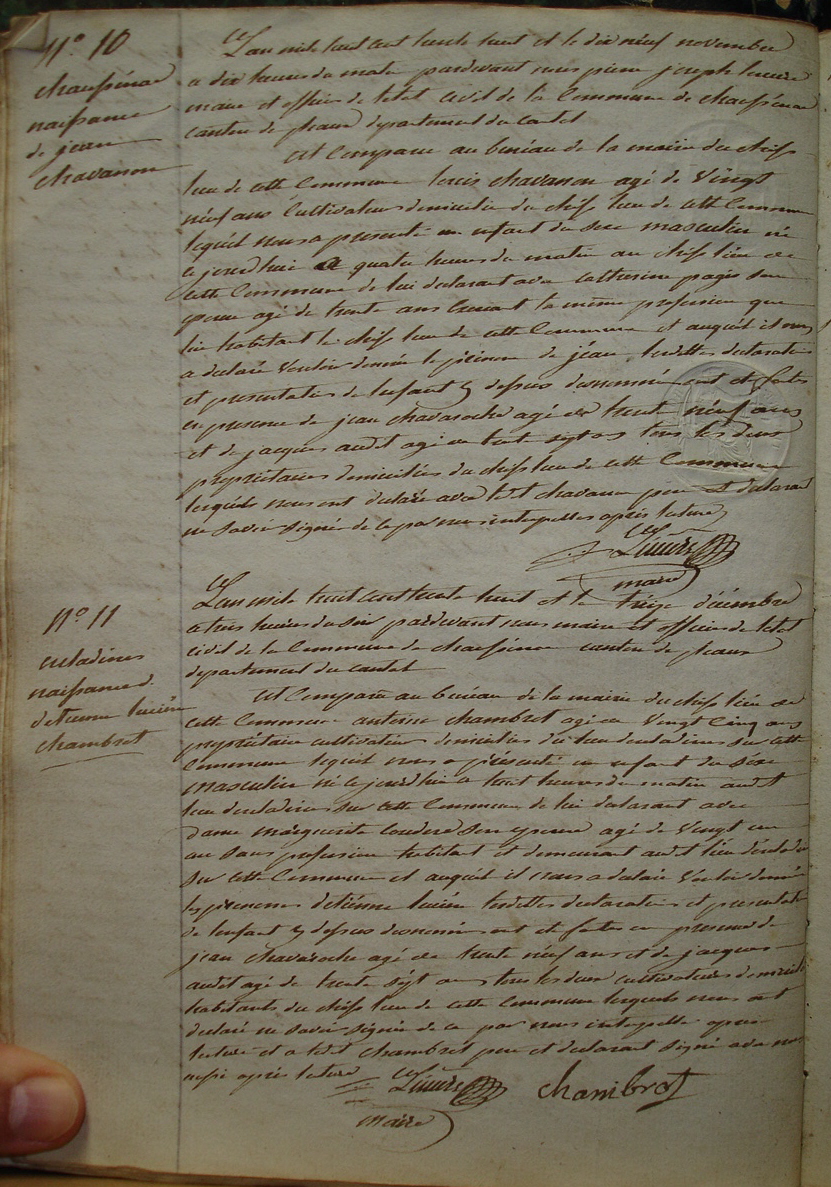 n° 10
chaussenac
naissance
de jean
chavanon
L'an mile huit cent trente huit et le dix neuf novembre
a dix heures du matin pardevant nous pierre joseph
maire et officier de letat civil de la Commune de chaussenac
canton de pleaux departement du cantal
est Comparu au bureau de la mairie du chef
lieu de cette Commune louis chavanon agé de Vingt
neuf ans Cultivateur domicilié du chef lieu de cette Commune
lequel nous a presenté un enfant du sexe masculin né
ce jourdhui a quatre heures du matin au chef lieu de
cette Commune de lui declarant et de catherine pagès son
epouse agé de trente ans la même profession que
lui habitant le chef lieu de cette Commune et auquel il nous
a declaré Vouloir donner le prenom de jean lesdittes declaration
et presentation de lenfant cy dessus denommé ont été faites
en presence de jean chavaroche agé de trente neuf ans
et de jacques audet agé de trente sept ans tous les deux
proprietaires domiciliés du chef lieu de cette Commune
lesquels nous ont declaré avec ledit chavanon pere et declarant
ne Savoir Signer de ce par nous interpellés après lecture
maire
n° 11
naissance d
detienne lucien
chambret
L'an mile huit cent trente huit et le treize décembre
a trois heures du Soir pardevant nous maire et officier de letat
civil de la Commune de chaussenac canton de pleaux
departement du cantal
est Comparu au bureau de la mairie du chef lieu de
cette Commune antoine chambret agé de Vingt Cinq ans
proprietaire cultivateur domicilié du lieu sur cette
Commune lequel nous a présenté un enfant du Sexe
masculin né ce jourdhui a huit heures du matin audit
lieu sur cette Commune de lui declarant avec
dame marguerite Son epouse agé de Vingt un
an Sans profession habitant et demeurant audit lieu
sur cette Commune et auquel il nous a declaré Vouloir donner
les prenoms detiénne lucien lesdittes declaration et presentation
de lenfant cy dessus denommé ont été faites en presence de
jean chavaroche agé de trente neuf ans et de jacques
audet agé de trente Sept ans tous les deux cultivateurs domiciliés
habitants du chef lieu de cette Commune lesquels nous ont
declaré ne Savoir Signer de ce par nous interpellé après
lecture et a ledit chambret pere et declarant Signé avec nous
après lecture
chambret
maire